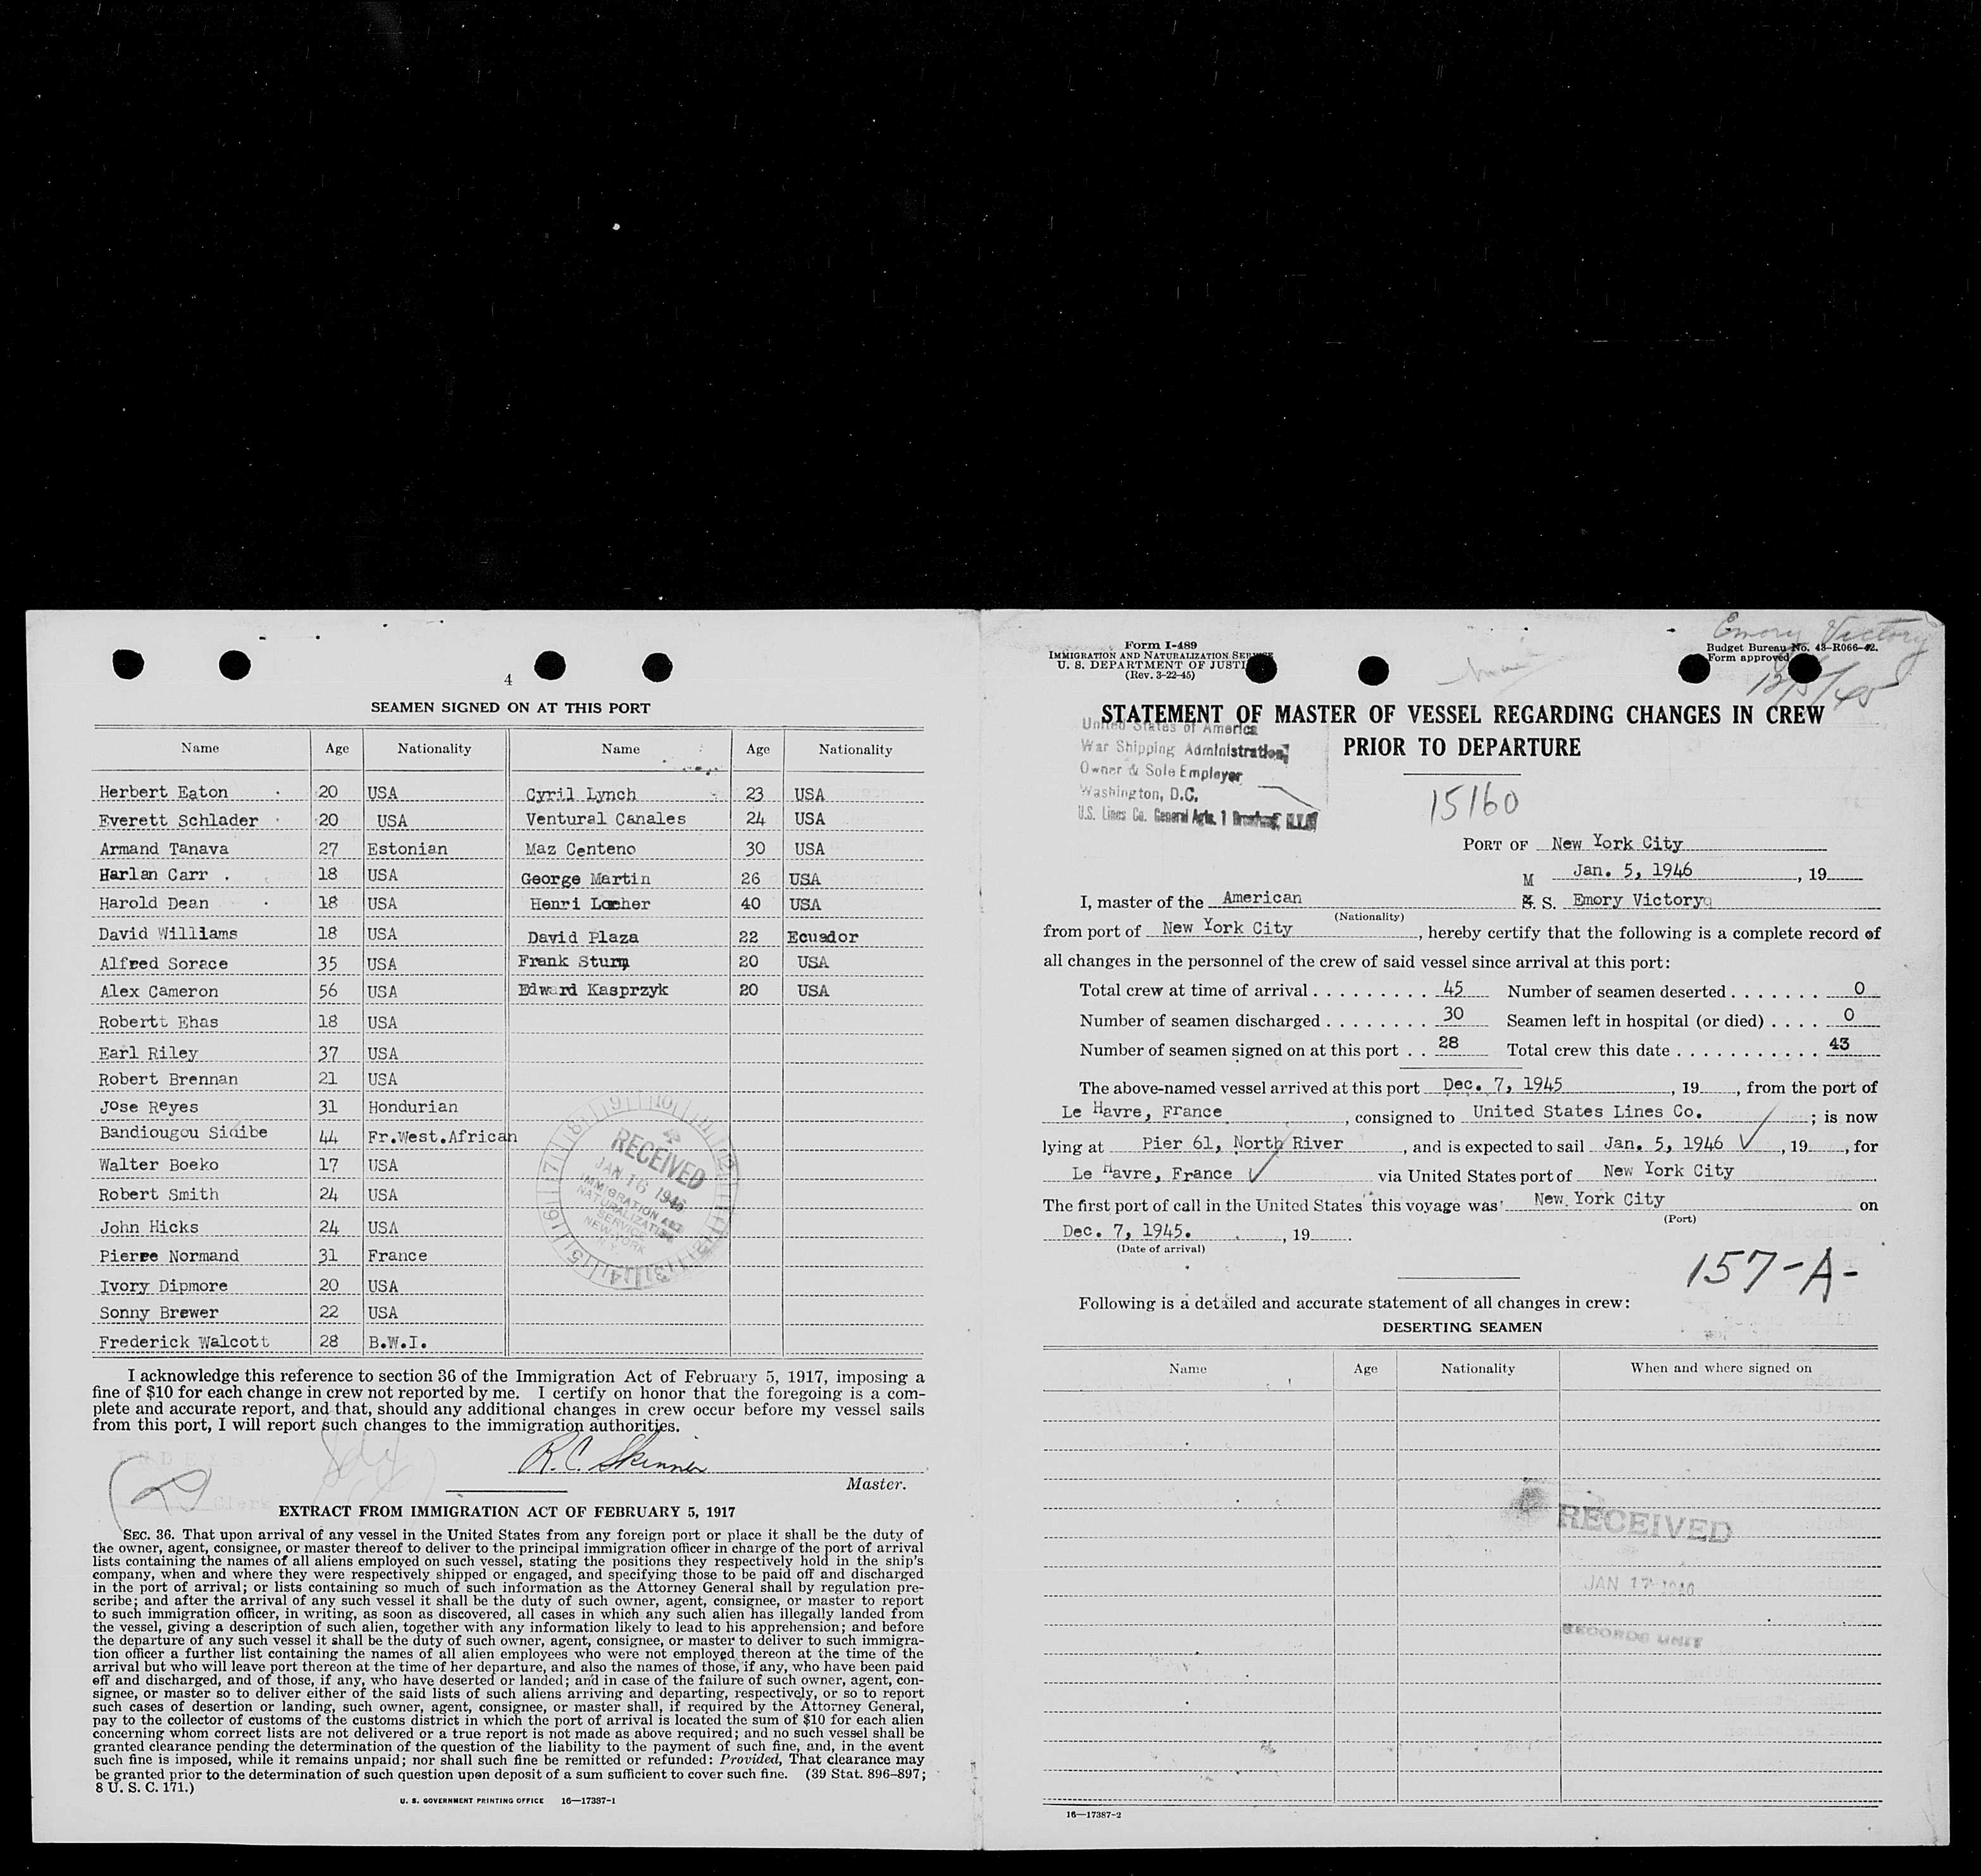 4
SEAMEN SIGNED ON AT THIS PORT
Name Age Nationality Name Age Nationality
Herbert Eaton 20 USA Cyril Lynch 23 USA
Everett Schlader 20 USA Ventural Canales 24 USA
Armand Tanava 27 Estonian Maz Centeno 30 USA
Harlan Carr . 18 USA George Martin 26 USA
Harold Dean 18 USA Henri Locher 40 USA
David Williams 18 USA David Plaza 22 Ecuador
Alfred Sorace 35 USA Frank Sturm 20 USA
Alex Cameron 56 USA Edward Kasprzyk 20 USA
Robertt Ehas 18 USA
Earl Riley 37 USA
Robert Brennan 21 USA
Jose Reyes 31 Hondurian
Bandiougou Sidibe 44 Fr.West.African
Walter Boeko 17 USA
Robert Smith 24 USA
John Hicks 24 USA
Pierre Normand 31 France
Ivory Dipmore 20 USA
Sonny Brewer 22 USA
Frederick Walcott 28 B.W.I.
RECEIVED
JAN 16 1946
IMMIGRATION AND
NATURALIZATION
SERVICE
NEW YORK
N.Y.
I acknowledge this reference to section 36 of the Immigration Act of February 5, 1917, imposing a
fine of $10 for each change in crew not reported by me. I certify on honor that the foregoing is a com-
plete and accurate report, and that, should any additional changes in crew occur before my vessel sails
from this port, I will report such changes to the immigration authorities.
R. C. Skinner
Master.
EXTRACT FROM IMMIGRATION ACT OF FEBRUARY 5, 1917
SEC. 36. That upon arrival of any vessel in the United States from any foreign port or place it shall be the duty of
the owner, agent, consignee, or master thereof to deliver to the principal immigration officer in charge of the port of arrival
lists containing the names of all aliens employed on such vessel, stating the positions they respectively hold in the ship's
company, when and where they were respectively shipped or engaged, and specifying those to be paid off and discharged
in the port of arrival; or lists containing so much of such information as the Attorney General shall by regulation pre-
scribe; and after the arrival of any such vessel it shall be the duty of such owner, agent, consignee, or master to report
to such immigration officer, in writing, as soon as discovered, all cases in which any such alien has illegally landed from
the vessel, giving a description of such alien, together with any information likely to lead to his apprehension; and before
the departure of any such vessel it shall be the duty of such owner, agent, consignee, or master to deliver to such immigra-
tion officer a further list containing the names of all alien employees who were not employed thereon at the time of the
arrival but who will leave port thereon at the time of her departure, and also the names of those, if any, who have been paid
off and discharged, and of those, if any, who have deserted or landed; and in case of the failure of such owner, agent, con-
signee, or master so to deliver either of the said lists of such aliens arriving and departing, respectively, or so to report
such cases of desertion or landing, such owner, agent, consignee, or master shall, if required by the Attorney General,
pay to the collector of customs of the customs district in which the port of arrival is located the sum of $10 for each alien
concerning whom correct lists are not delivered or a true report is not made as above required; and no such vessel shall be
granted clearance pending the determination of the question of the liability to the payment of such fine, and, in the event
such fine is imposed, while it remains unpaid; nor shall such fine be remitted or refunded: Provided, That clearance may
be granted prior to the determination of such question upon deposit of a sum sufficient to cover such fine. (39 Stat. 896–897;
8 U. S. C. 171.)
U. S. GOVERNMENT PRINTING OFFICE 16—17387-1
Form I-489
IMMIGRATION AND NATURALIZATION SERVICE
U. S. DEPARTMENT OF JUSTI
(Rev. 3-22-45)
Emory Victory
Budget Bureau No. 43–R066–42.
Form approved
12/5/45
STATEMENT OF MASTER OF VESSEL REGARDING CHANGES IN CREW
PRIOR TO DEPARTURE
United States of America
War Shipping Administration,
Owner & Sole Employer
Washington, D.C.
U.S. Lines Co. General Agts. 1 Broadway, N.Y.C.
15160
PORT OF New York City
Jan. 5, 1946, 19
I, master of the American M S. S. Emory Victory
(Nationality)
from port of New York City, hereby certify that the following is a complete record of
all changes in the personnel of the crew of said vessel since arrival at this port:
Total crew at time of arrival 45 Number of seamen deserted 0
Number of seamen discharged 30 Seamen left in hospital (or died) 0
Number of seamen signed on at this port 28 Total crew this date 43
The above-named vessel arrived at this port Dec. 7, 1945, 19, from the port of
Le Havre, France, consigned to United States Lines Co.; is now
lying at Pier 61, North River, and is expected to sail Jan. 5, 1946, 19, for
Le Havre, France via United States port of New York City
The first port of call in the United States this voyage was New York City on
(Port)
Dec. 7, 1945., 19
(Date of arrival)
157-A-
Following is a detailed and accurate statement of all changes in crew:
DESERTING SEAMEN
Name Age Nationality When and where signed on
RECEIVED
JAN 17 1946
RECORDS UNIT
16—17387-2